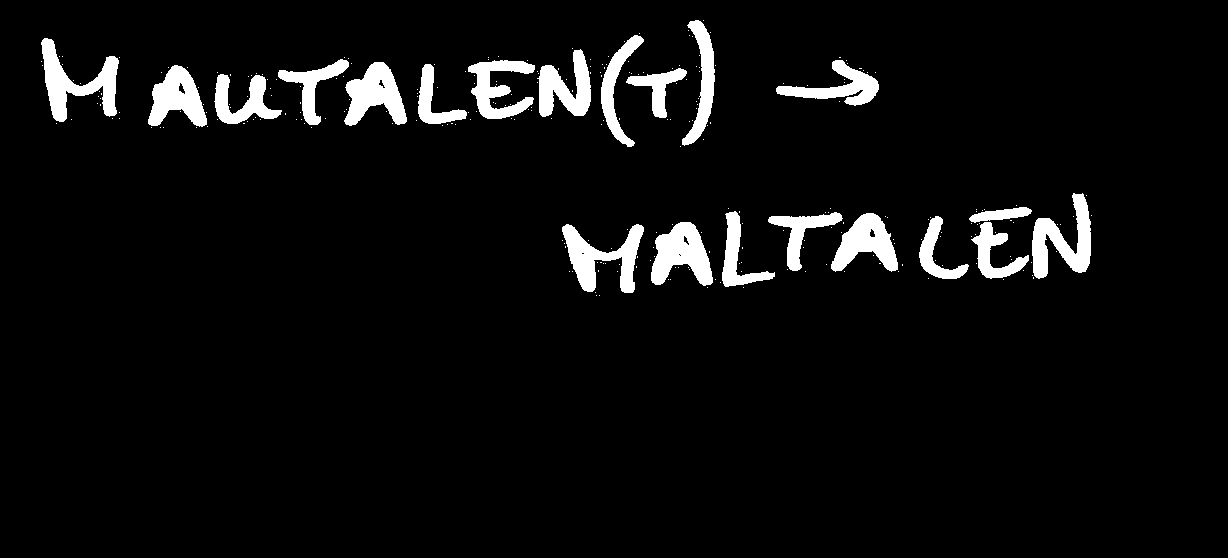 MAUTALEN(T) →
MALTALEN